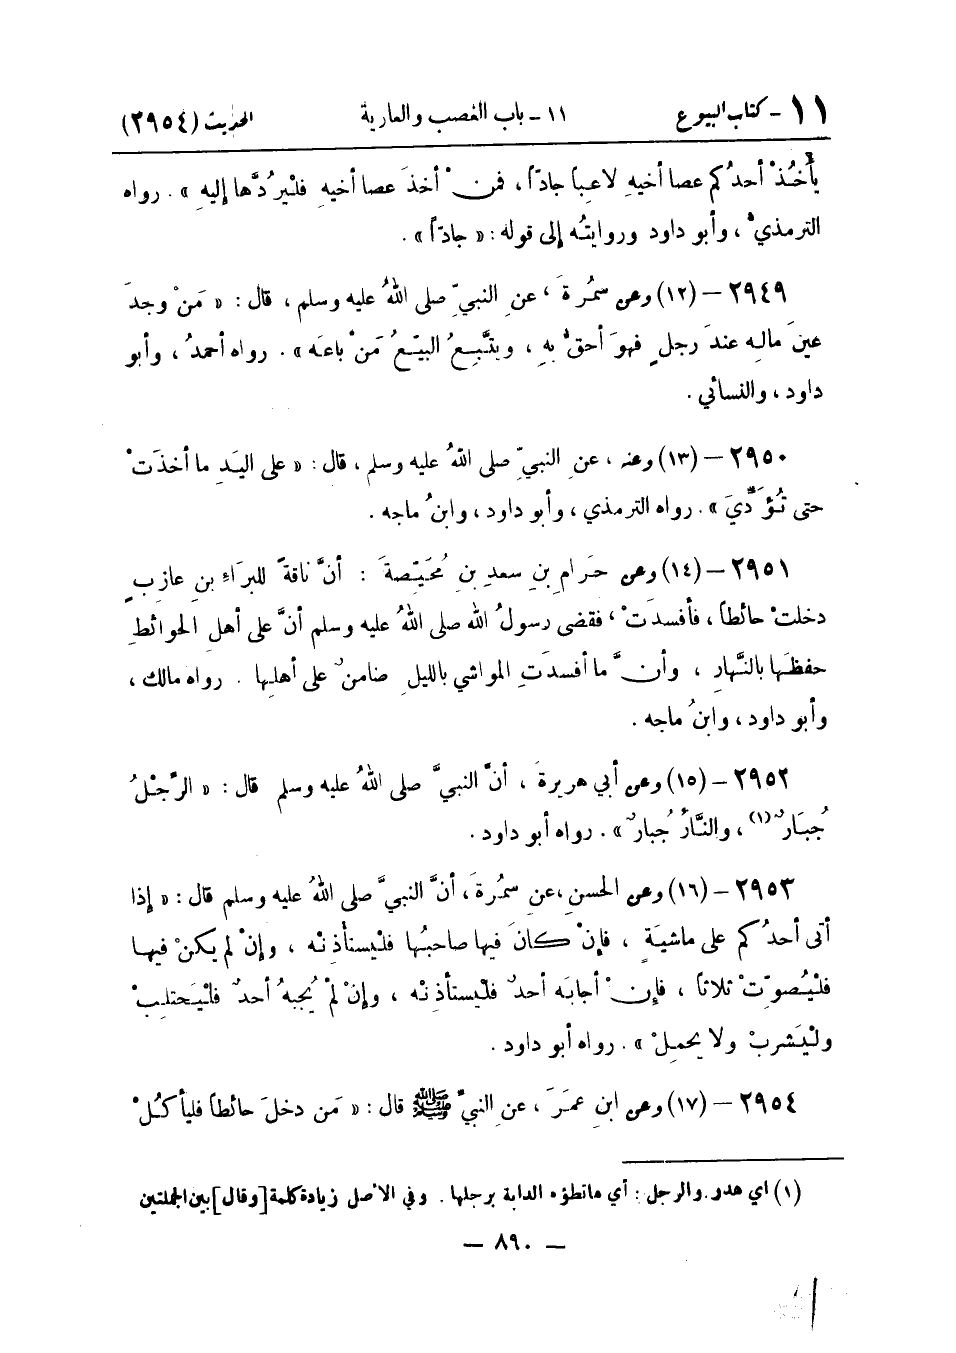 ١١ - كتاب البيوع    ١١ - باب الغصب والعارية    الحديث (٢٩٥٤)
يأخُذْ أحدُكم عصا أخيهِ لاعباً جادّاً ، فمنْ أخذَ عصا أخيهِ فلْيرُدَّها إليهِ » . رواه
الترمذيُّ ، وأبو داود وروايتُه إلى قوله : « جادّاً » .
٢٩٤٩ – (١٢) وعن سمُرةَ ، عنِ النبيِّ صلى اللهُ عليه وسلم ، قال : « مَنْ وجدَ
عينَ مالِه عندَ رجلٍ فهوَ أحقُّ بهِ ، ويتَّبِعُ البيِّعُ مَنْ باعَه » . رواه أحمدُ ، وأبو
داود ، والنسائي .
٢٩٥٠ – (١٣) وعنه ، عنِ النبيِّ صلى اللهُ عليه وسلم ، قال : « على اليَدِ ما أخذَتْ
حتى تُؤدِّيَ » . رواه الترمذي ، وأبو داود ، وابنُ ماجه .
٢٩٥١ – (١٤) وعن حَرامِ بنِ سعدِ بنِ مُحَيِّصةَ : أنَّ ناقةً للبرَاءِ بنِ عازبٍ
دخلتْ حائطاً ، فأفسدَتْ ، فقضى رسولُ الله صلى اللهُ عليه وسلم أنَّ على أهلِ الحوائطِ
حفظَها بالنَّهارِ ، وأنَّ ما أفسدَتِ المواشي بالليلِ ضامنٌ على أهلِها . رواه مالك ،
وأبو داود ، وابنُ ماجه .
٢٩٥٢ – (١٥) وعن أبي هريرةَ ، أنَّ النبيَّ صلى اللهُ عليه وسلم قال : « الرِّجْلُ
جُبَارٌ(١) ، والنَّارُ جُبارٌ » . رواه أبو داود .
٢٩٥٣ – (١٦) وعن الحسنِ ،عنِ سمُرةَ ، أنَّ النبيَّ صلى اللهُ عليه وسلم قال : « إذا
أتى أحدُكم على ماشيَةٍ ، فإنْ كانَ فيها صاحبُها فلْيستأذِنْه ، وإنْ لم يكنْ فيها
فلْيُصوِّتْ ثلاثاً ، فإنْ أجابَه أحدٌ فلْيستأذِنْه ، وإنْ لمْ يُجبهُ أحدٌ فلْيَحتلبْ
ولْيَشربْ ولا يحملْ » . رواه أبو داود .
٢٩٥٤ – (١٧) وعن ابنِ عمَرَ ، عنِ النبيِّ ﷺ قال : « مَن دخلَ حائطاً فليأكُلْ
(١) اي هدر . والرجل : أي ماتطؤه الدابة برجلها . وفي الأصل زيادة كلمة [وقال] بين الجملتين
— ٨٩٠ —